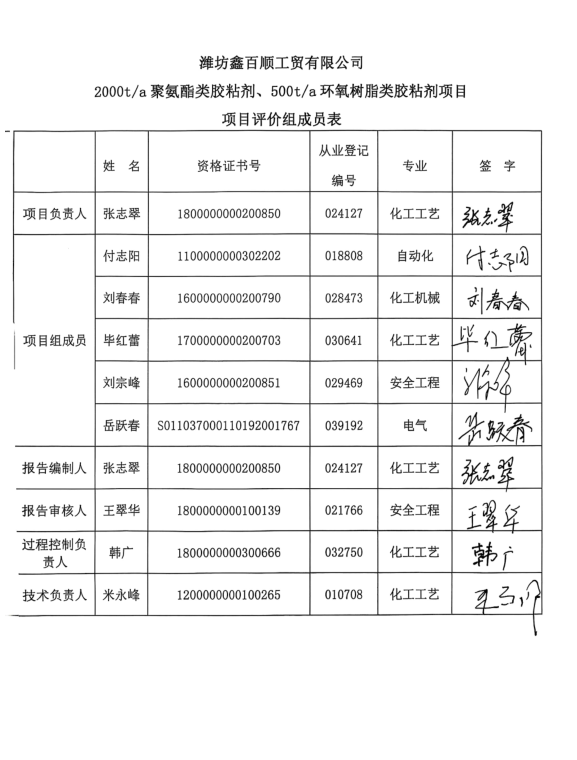 潍坊鑫百顺工贸有限公司
2000t/a 聚氨酯类胶粘剂、500t/a 环氧树脂类胶粘剂项目
项目评价组成员表
姓 名 资格证书号 从业登记编号 专业 签 字
项目负责人 张志翠 1800000000200850 024127 化工工艺 张志翠
项目组成员 付志阳 1100000000302202 018808 自动化 付志阳
刘春春 1600000000200790 028473 化工机械 刘春春
毕红蕾 1700000000200703 030641 化工工艺 毕红蕾
刘宗峰 1600000000200851 029469 安全工程
岳跃春 S011037000110192001767 039192 电气 岳跃春
报告编制人 张志翠 1800000000200850 024127 化工工艺 张志翠
报告审核人 王翠华 1800000000100139 021766 安全工程 王翠华
过程控制负责人 韩广 1800000000300666 032750 化工工艺 韩广
技术负责人 米永峰 1200000000100265 010708 化工工艺